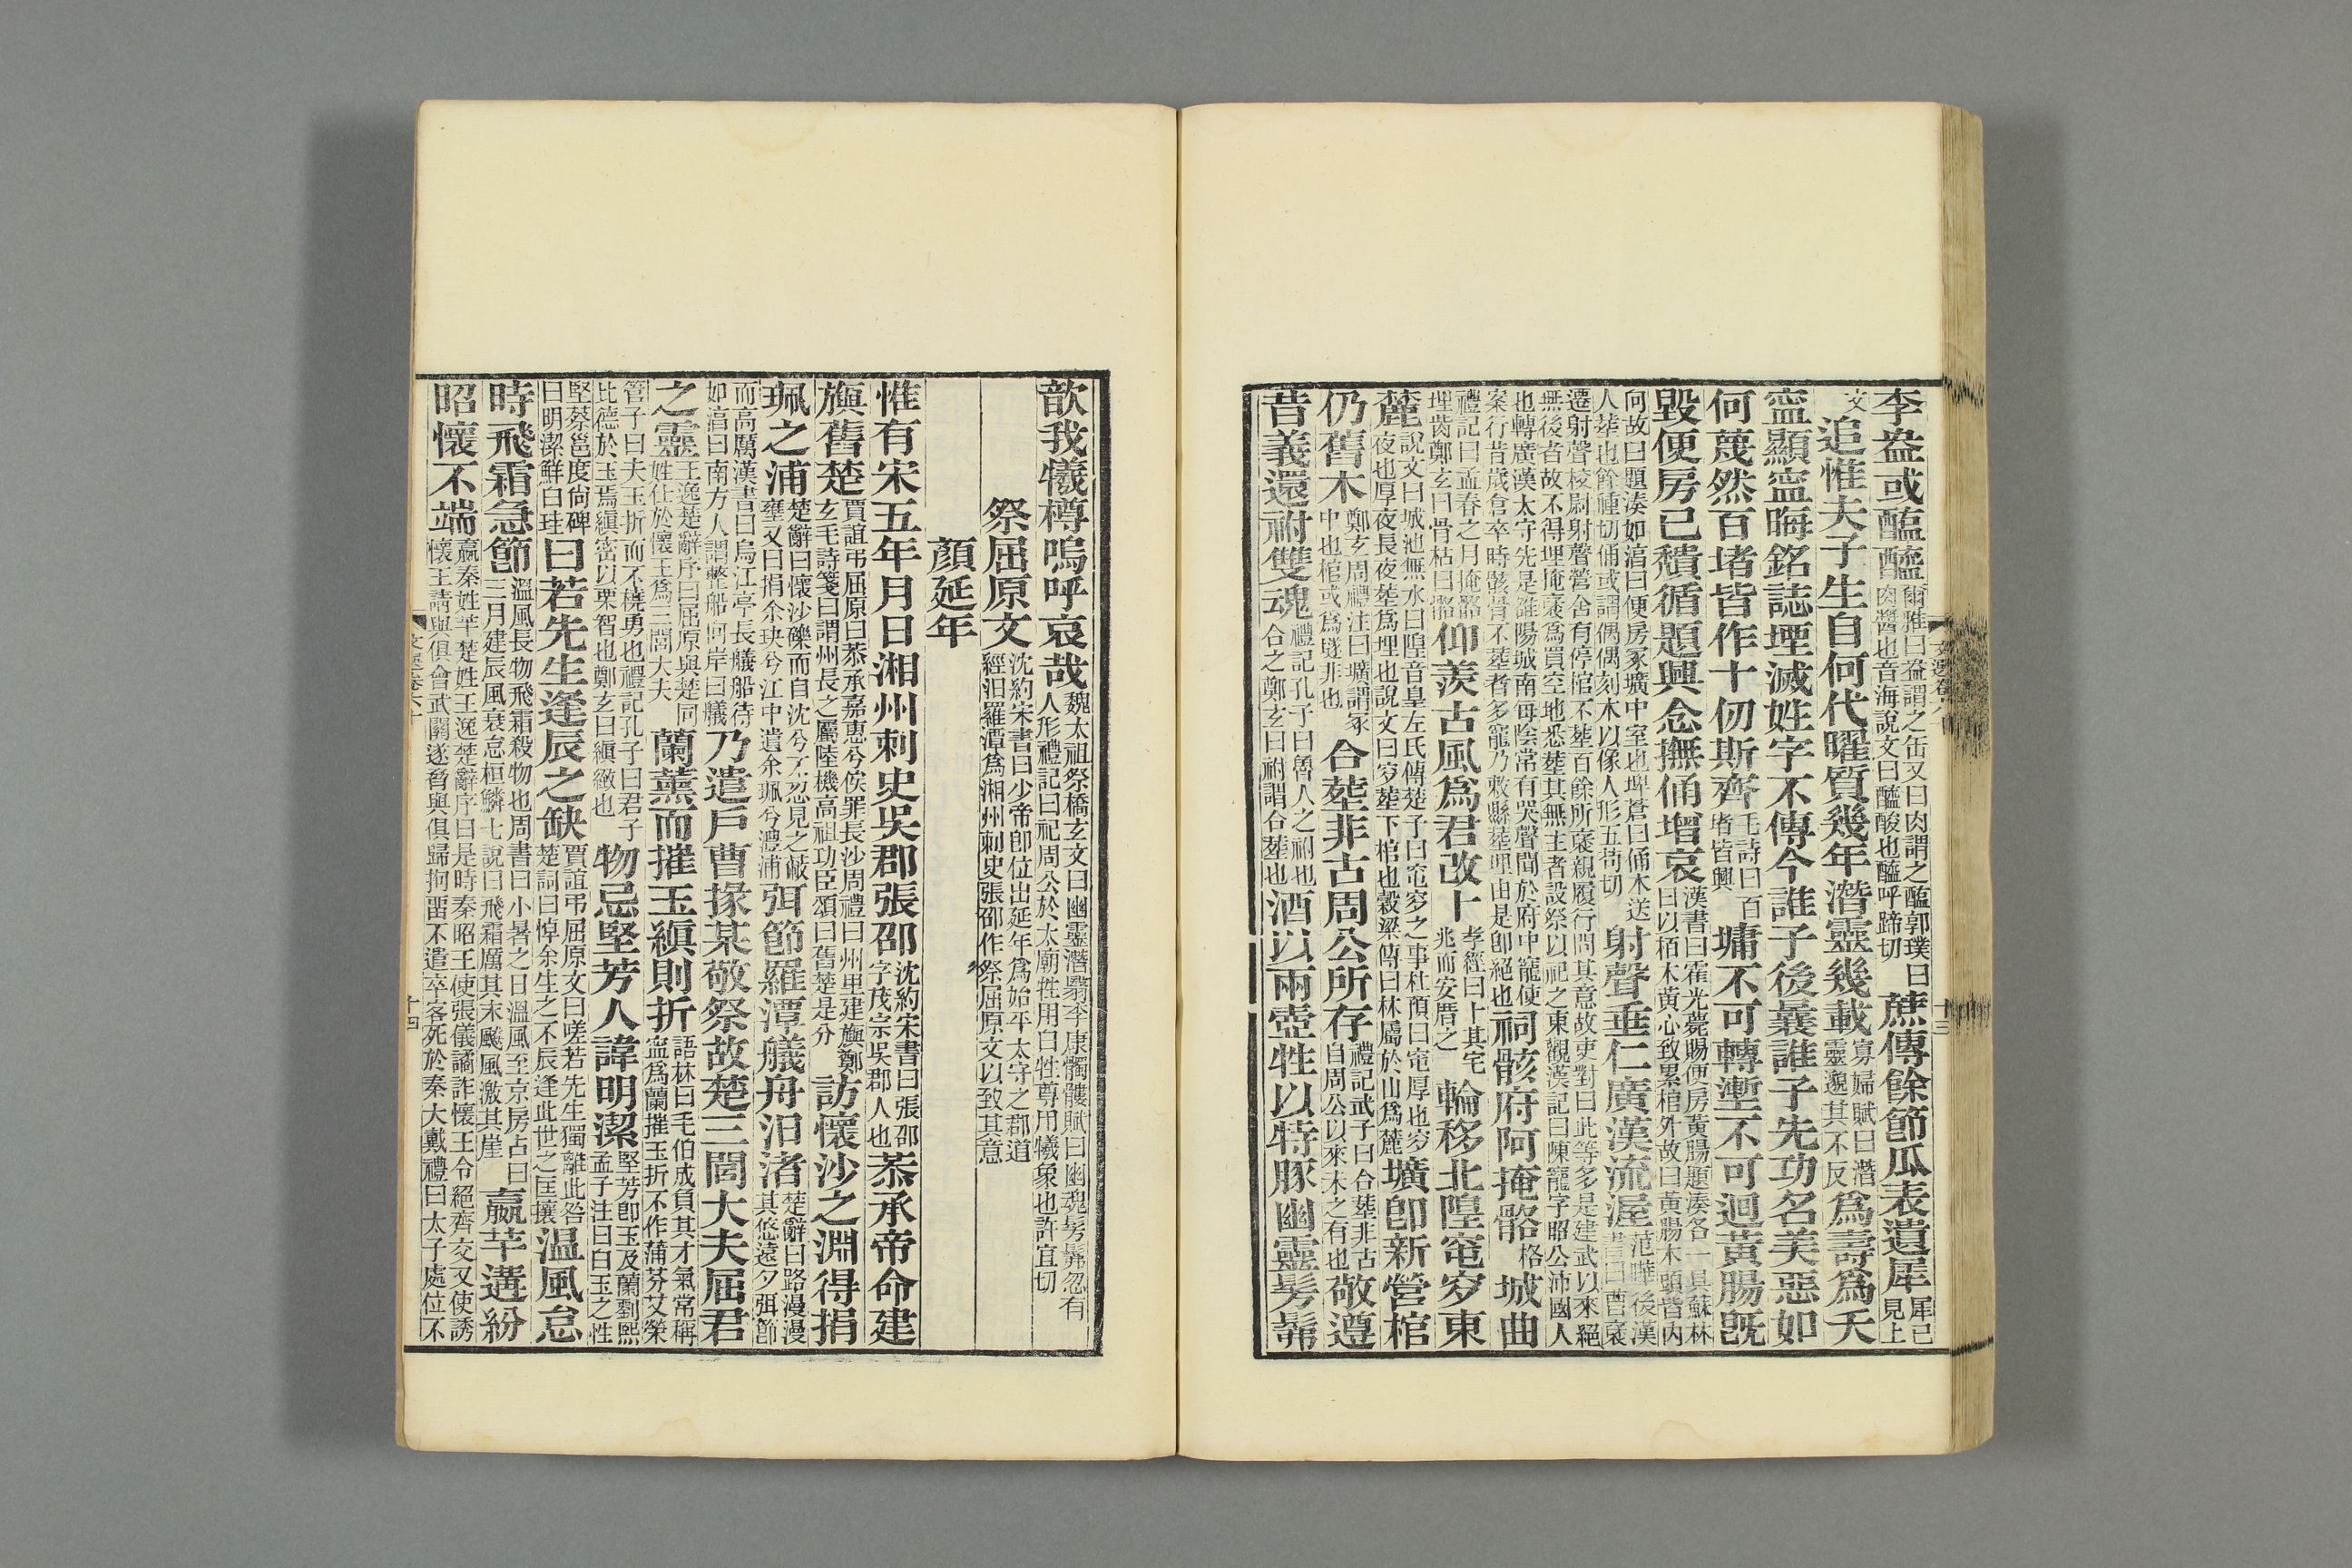 李盎或醢醯爾雅曰盎謂之缶又曰肉謂之醢郭璞曰肉醬也音海說文曰醯酸也醯呼蹄切蔗傳餘節瓜表遺犀犀已見上
文追惟夫子生自何代曜質幾年潛靈幾載寡婦賦曰潛靈邈其不反爲壽爲夭
寍顯寍晦銘誌堙滅姓字不傳今誰子後曩誰子先功名美惡如
何蔑然百堵皆作十仞斯齊毛詩曰百堵皆興墉不可轉塹不可迴黃腸旣
毀便房已穨循題興念撫俑增哀漢書曰霍光薨賜便房黃腸題湊各一具蘇林曰以栢木黃心致累棺外故曰黃腸木頭皆內
向故曰題湊如淳曰便房冢壙中室也埤蒼曰俑木送人葬也餘腫切俑或謂偶偶刻木以像人形五苟切射聲垂仁廣漢流渥范曄後漢書曰曹褒
遷射聲校尉射聲營舍有停棺不葬百餘所褒親履行問其意故吏對曰此等多是建武以來絕無後者故不得埋掩褒爲買空地悉葬其無主者設祭以祀之東觀漢記曰陳寵字昭公沛國人
也轉廣漢太守先是雒陽城南每陰常有哭聲聞於府中寵使案行昔歲倉卒時骸骨不葬者多寵乃敕縣葬埋由是卽絕也祠骸府阿掩骼格城曲
禮記曰孟春之月掩骼埋胔鄭玄曰骨枯曰骼仰羨古風爲君改卜孝經曰卜其宅兆而安厝之輪移北隍窀穸東
麓說文曰城池無水曰隍音皇左氏傳楚子曰窀穸之事杜預曰窀厚也穸夜也厚夜長夜葬爲埋也說文曰穸葬下棺也穀梁傳曰林屬於山爲麓壙卽新營棺
仍舊木鄭玄周禮注曰壙謂冢中也棺或爲槥非也合葬非古周公所存禮記武子曰合葬非古自周公以來未之有也敬遵
昔義還祔雙魂禮記孔子曰魯人之祔也合之鄭玄曰祔謂合葬也酒以兩壺牲以特豚幽靈髣髴
文選卷六十
十三
歆我犧樽嗚呼哀哉魏太祖祭橋玄文曰幽靈潛翳李康髑髏賦曰幽魂髣髴忽有人形禮記曰祀周公於太廟牲用白牲尊用犧象也許宜切
祭屈原文沈約宋書曰少帝卽位出延年爲始平太守之郡道經汨羅潭爲湘州刺史張邵作祭屈原文以致其意
顏延年
惟有宋五年月日湘州刺史吳郡張邵沈約宋書曰張邵字茂宗吳郡人也恭承帝命建
旟舊楚賈誼弔屈原曰恭承嘉惠兮俟罪長沙周禮曰州里建旟鄭玄毛詩箋曰謂州長之屬陸機高祖功臣頌曰舊楚是分訪懷沙之淵得捐
珮之浦楚辭曰懷沙礫而自沈兮不忍見之蔽壅又曰捐余玦兮江中遺余珮兮澧浦弭節羅潭艤舟汨渚楚辭曰路漫漫其悠遠夕弭節
而高厲漢書曰烏江亭長艤船待如淳曰南方人謂整船向岸曰艤乃遣戶曹掾某敬祭故楚三閭大夫屈君
之靈王逸楚辭序曰屈原與楚同姓仕於懷王爲三閭大夫蘭薰而摧玉縝則折語林曰毛伯成負其才氣常稱寍爲蘭摧玉折不作蒲芬艾榮
管子曰夫玉折而不橈勇也禮記孔子曰君子比德於玉焉縝密以栗智也鄭玄曰縝緻也物忌堅芳人諱明潔堅芳卽玉及蘭劉熙孟子注曰白玉之性
堅蔡邕度尙碑曰明潔鮮白珪曰若先生逢辰之缺賈誼弔屈原文曰嗟若先生獨離此咎楚詞曰悼余生之不辰逢此世之匡攘溫風怠
時飛霜急節溫風長物飛霜殺物也周書曰小暑之日溫風至京房占曰三月建辰風衰怠桓鱗七說曰飛霜厲其末飈風激其崖嬴芈遘紛
昭懷不端嬴秦姓芈楚姓王逸楚辭序曰是時秦昭王使張儀譎詐懷王令絕齊交又使誘懷王請與俱會武關遂脅與俱歸拘畱不遣卒客死於秦大戴禮曰太子處位不
文選卷六十
十四